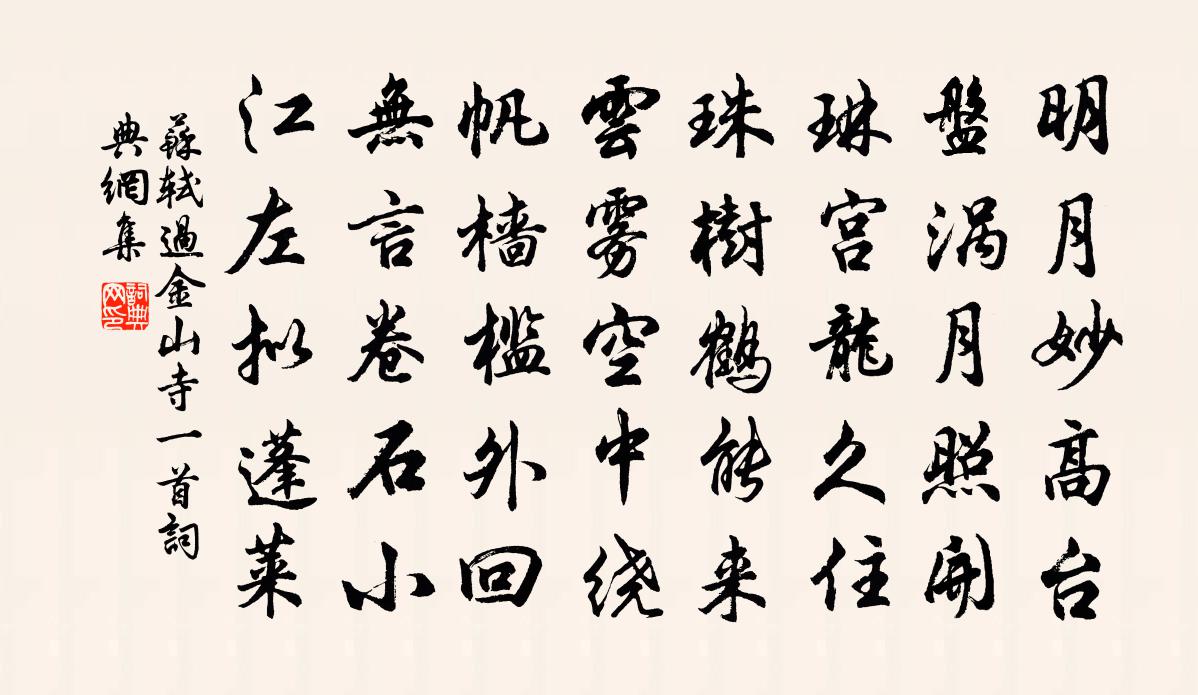 明月妙高台
盤涡月照開
琳宫龍久住
珠樹鶴能来
雲雾空中绕
帆樯檻外回
無言卷石小
江左拟蓬莱
蘇軾過金山寺一首詞
典網集
詞典
网印